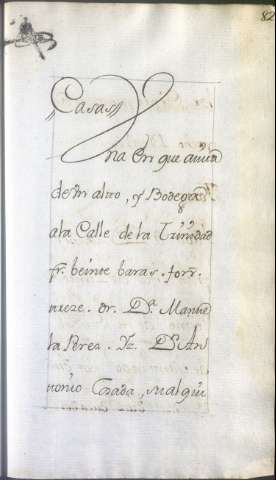 82
Casas
Una en que avita
desin alto, y Bodega
a la Calle de la Trinidad
fr. beinte baras. forr.
treze. dr. Dª. Manue
la Perez. Yz. Dn. An
tonio Tzada, y al qui